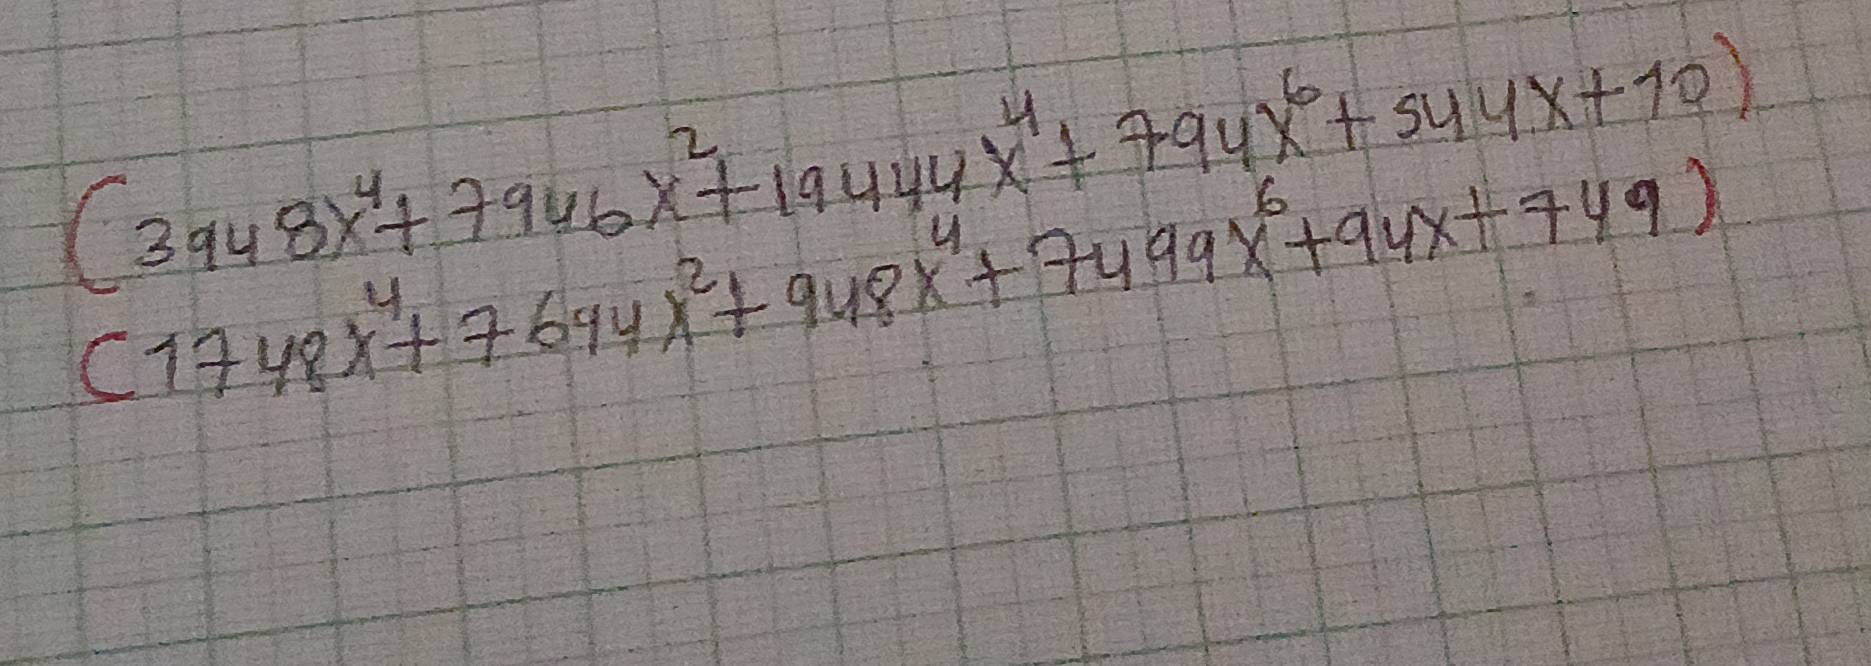 (3948x⁴+7946x²+19444x⁴+794x⁶+544x+10)
(1748x⁴+7694x²+948x⁴+7499x⁶+94x+749)